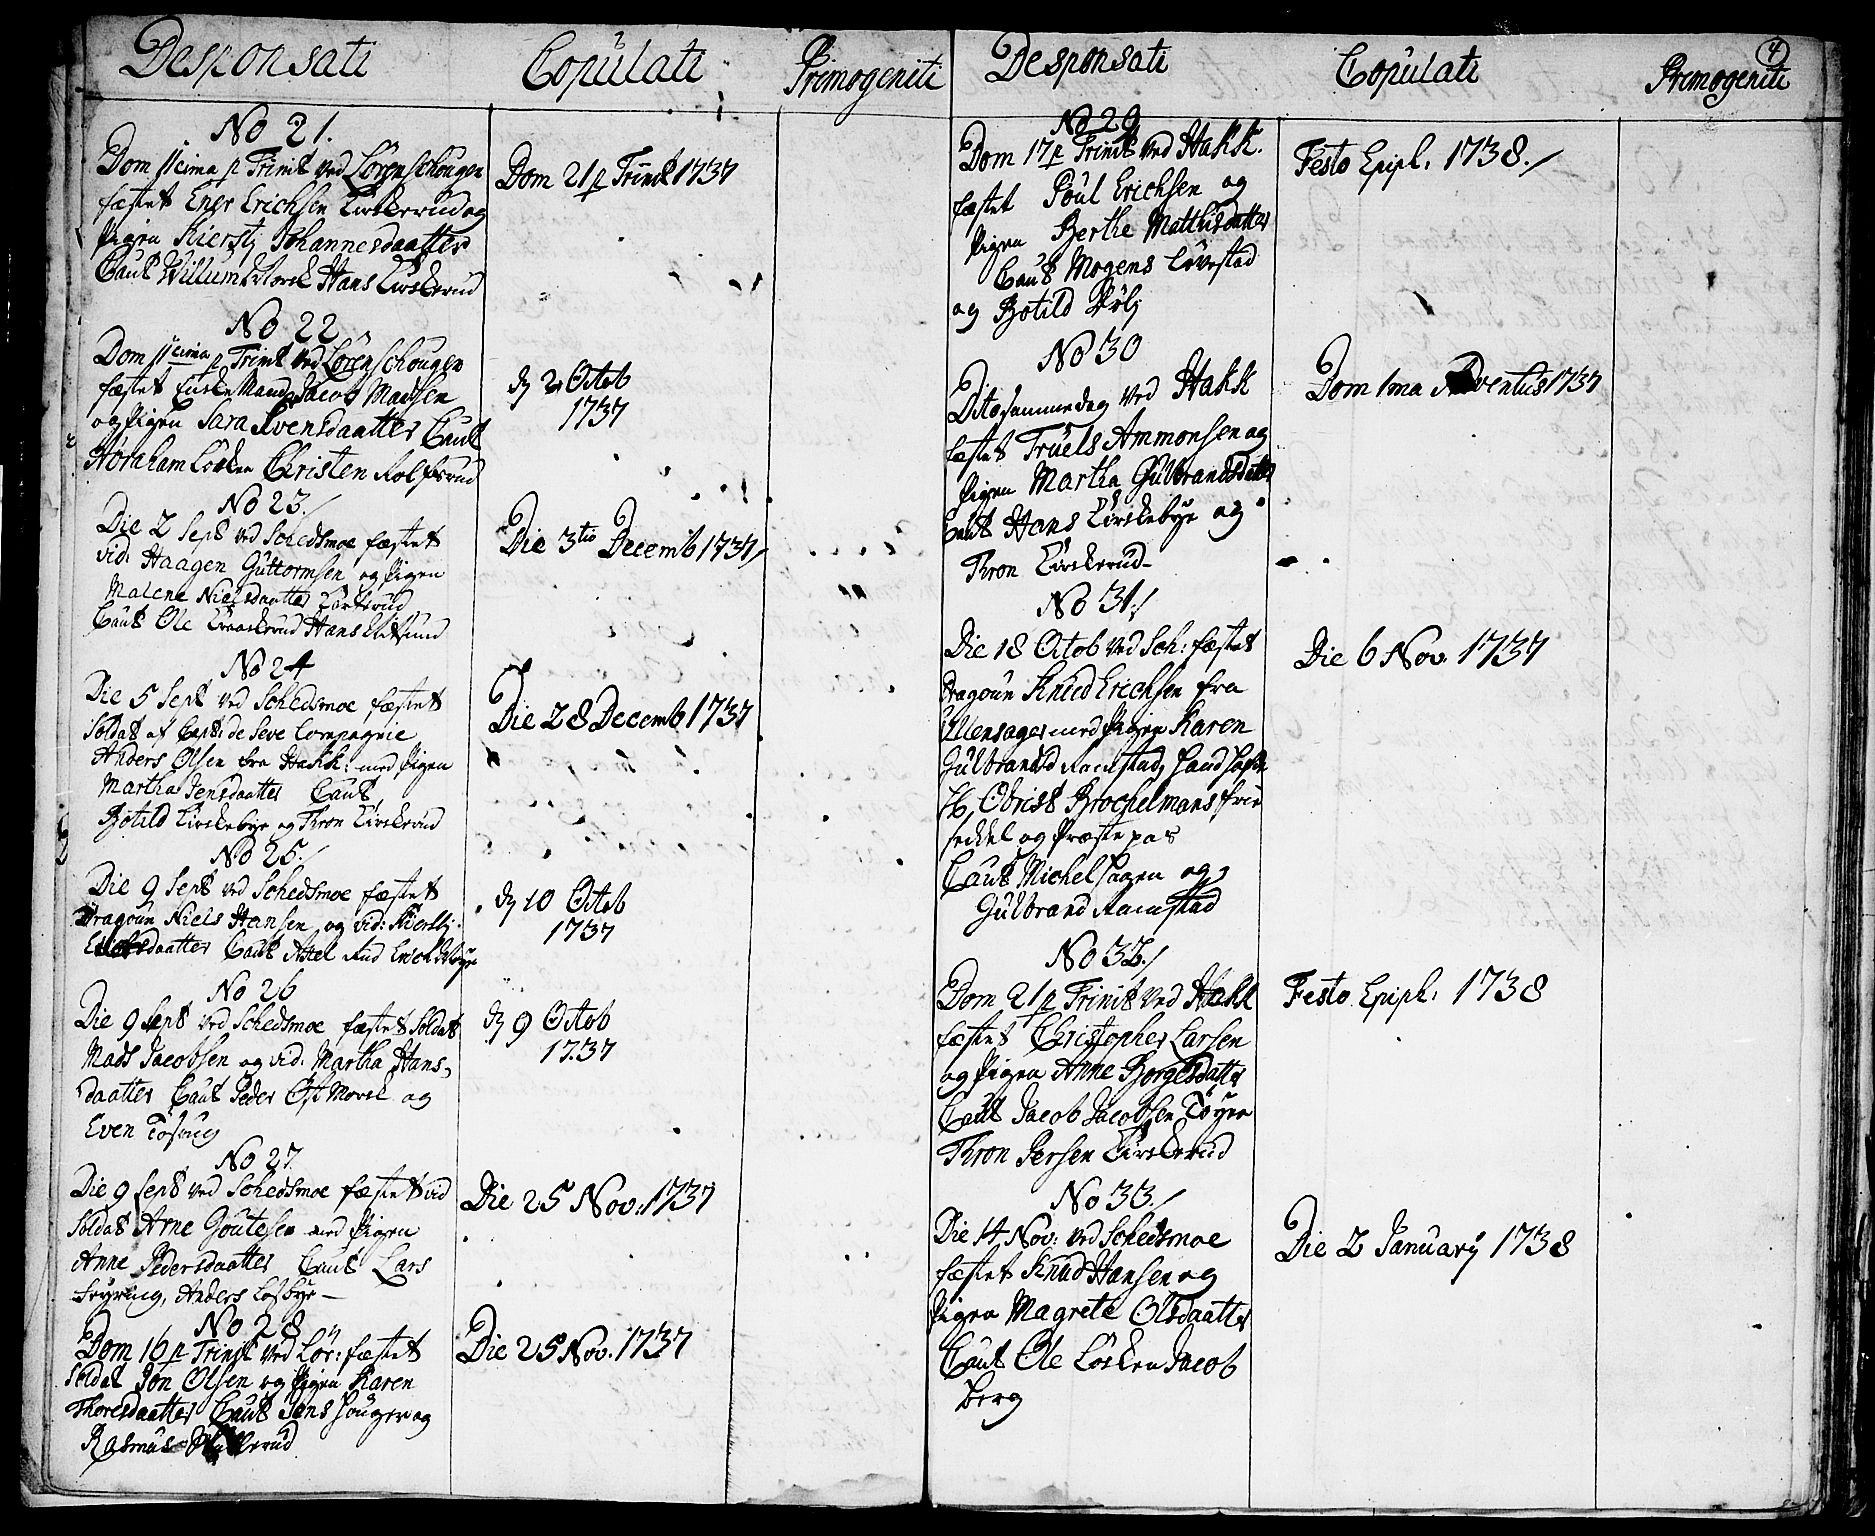 Desponsati
Copulati
Primogeniti
No 21.
Dom 11cima p Trinit ved Lörenschougen
fæstet Ener Erichsen Kirkerud og
Pigen Kiersti Johannesdaatter
Caut Willum Hans Kirkerud
Dom 21 p Trinit 1737
No 22
Dom 11cima p Trinit ved Lörenschougen
fæstet Enke Mand Jacob Madsen
og Pigen Sara Svensdaatter Caut
Abraham Losken Christen Rolfsrud
dj 2 Octob
1737
No 23./
Die 2 Sept ved Schedsmoe fæstet
vid. Haagen Guttormsen og Pigen
Malene Nielsdaatter
Caut Ole Hans
Die 3tio Decemb 1737/
No 24
Die 5 Sept ved Schedsmoe fæstet
Soldat af Capt: de Seve Compagnie
Anders Olsen fra Hakk: med Pigen
Martha Jensdaatter Caut
Botild Kirkebye og Thron Kirkerud
Die 28 Decemb 1737
No 25./
Die 9 Sept ved Schedsmoe fæstet
Dragoun Niels Hansen og vid: Kiersti
daatter Caut Axel Rud
dj 10 Octob
1737
No 26
Die 9 Sept ved Schedsmoe fæstet Soldat
Mads Jacobsen og vid. Martha Hans-
daatter Caut Peder Ost Morsk og
Even
dj 9 Octob
1737
No 27.
Die 9 Sept ved Schedsmoe fæstet vid
Soldat Arne Goutesen med Pigen
Anne Pedersdaatter Caut Lars
Anders Losbye
Die 25 Nov: 1737
No 28
Dom 16 p Trinit ved Lör: fæstet
Soldat Jon Olsen og Pigen Karen
Thoresdaatter Caut Jens Houger og
Rasmus
Die 25 Nov. 1737
4
Desponsati
Copulati
Primogeniti
No 29
Dom 17 p Trinit ved Hakk.
fæstet Poul Erichsen og
Pigen Berthe Matthisdatter
Caut Mogens Løvestad
og Botild
Festo Epiph: 1738./
No 30
Dito samme dag ved Hakk
fæstet Truels Ammonsen og
Pigen Martha Gulbrandsdatter
Caut Hans Kirkebye og
Thron Kirkerud
Dom 1ma Adventus 1737
No 31./
Die 18 Octob ved Sch: fæstet
Dragoun Knud Erichsen fra
Ullensager med Pigen Karen
Gulbrandsd Ramstad,
Hr Obrist Brochelmans frie
seddel og Præste pas
Caut Michel Haagen og
Gulbrand Ramstad
Die 6 Nov. 1737
No 32./
Dom 21 p Trinit ved Hakk
fæstet Christopher Larsen
og Pigen Anne Borgesdatter
Caut Jacob Jacobsen Töyen
Thron Persen Kirkerud
Festo Epiph: 1738
No 33./
Die 14 Nov: ved Schedsmoe
fæstet Knud Hansen og
Pigen Magrete Olsdaatter
Caut Ole Losken Jacob
berg
Die 2 January 1738